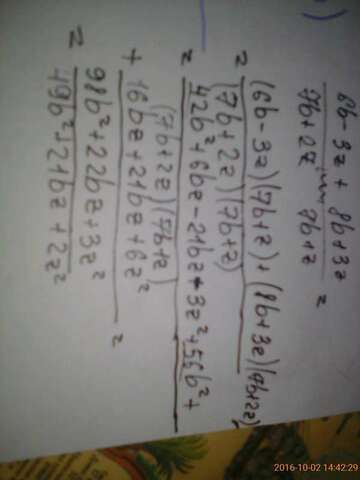 6b-3z + 8b+3z
7b+2z 7b+z =
= (6b-3z)(7b+z)+(8b+3z)(7b+2z)
(7b+2z)(7b+z)
= 42b²+6bz-21bz-3z²+56b²+
(7b+2z)(7b+z)
+ 16bz+21bz+6z² =
= 98b²+22bz+3z²
49b²+21bz+2z²
2016-10-02 14:42:29